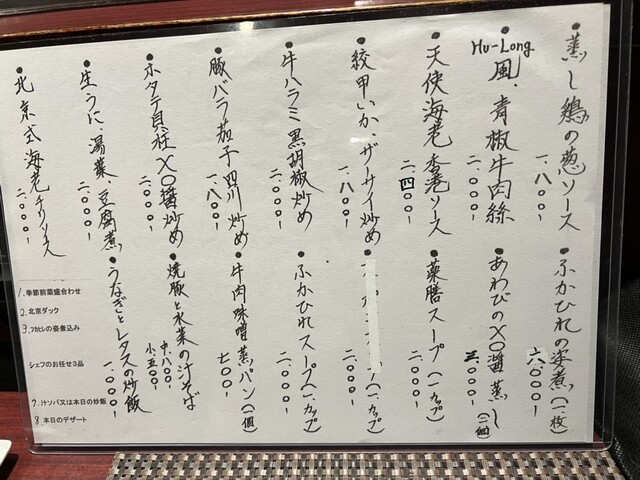 ●蒸し鶏の葱ソース
一、八〇〇-
Hu-Long
●風、青椒牛肉絲
二、〇〇〇-
●天使海老香港ソース
二、四〇〇-
●紋甲いか、ザーサイ炒め
一、八〇〇-
●牛ハラミ黒胡椒炒め
二、〇〇〇-
●豚バラ茄子四川炒め
一、八〇〇-
●ホタテ貝柱XO醤炒め
二、〇〇〇-
●生うに、湯葉豆腐煮
二、〇〇〇-
●北京式海老チリソース
二、〇〇〇-
●ふかひれの姿煮(一枚)
六、〇〇〇-
●あわびのXO醤蒸し(一個)
三、〇〇〇-
●薬膳スープ(一カップ)
二、〇〇〇-
(一カップ)
二、〇〇〇-
●ふかひれスープ(一カップ)
二、〇〇〇-
●牛肉味噌蒸パン(一個)
七〇〇-
●焼豚と水菜の汁そば
中、八〇〇-
小、五〇〇-
●うなぎとレタスの炒飯
一、〇〇〇-
1.季節前菜盛合わせ
2.北京ダック
3.フカヒレの姿煮込み
シェフのお任せ3品
7.汁ソバ又は本日の炒飯
8.本日のデザート